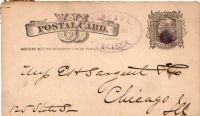 POSTAL CARD.
NOTHING BUT THE ADDRESS CAN BE PLACED ON THIS SIDE
E H Sargent & Co
Chicago
125 State St
Ill